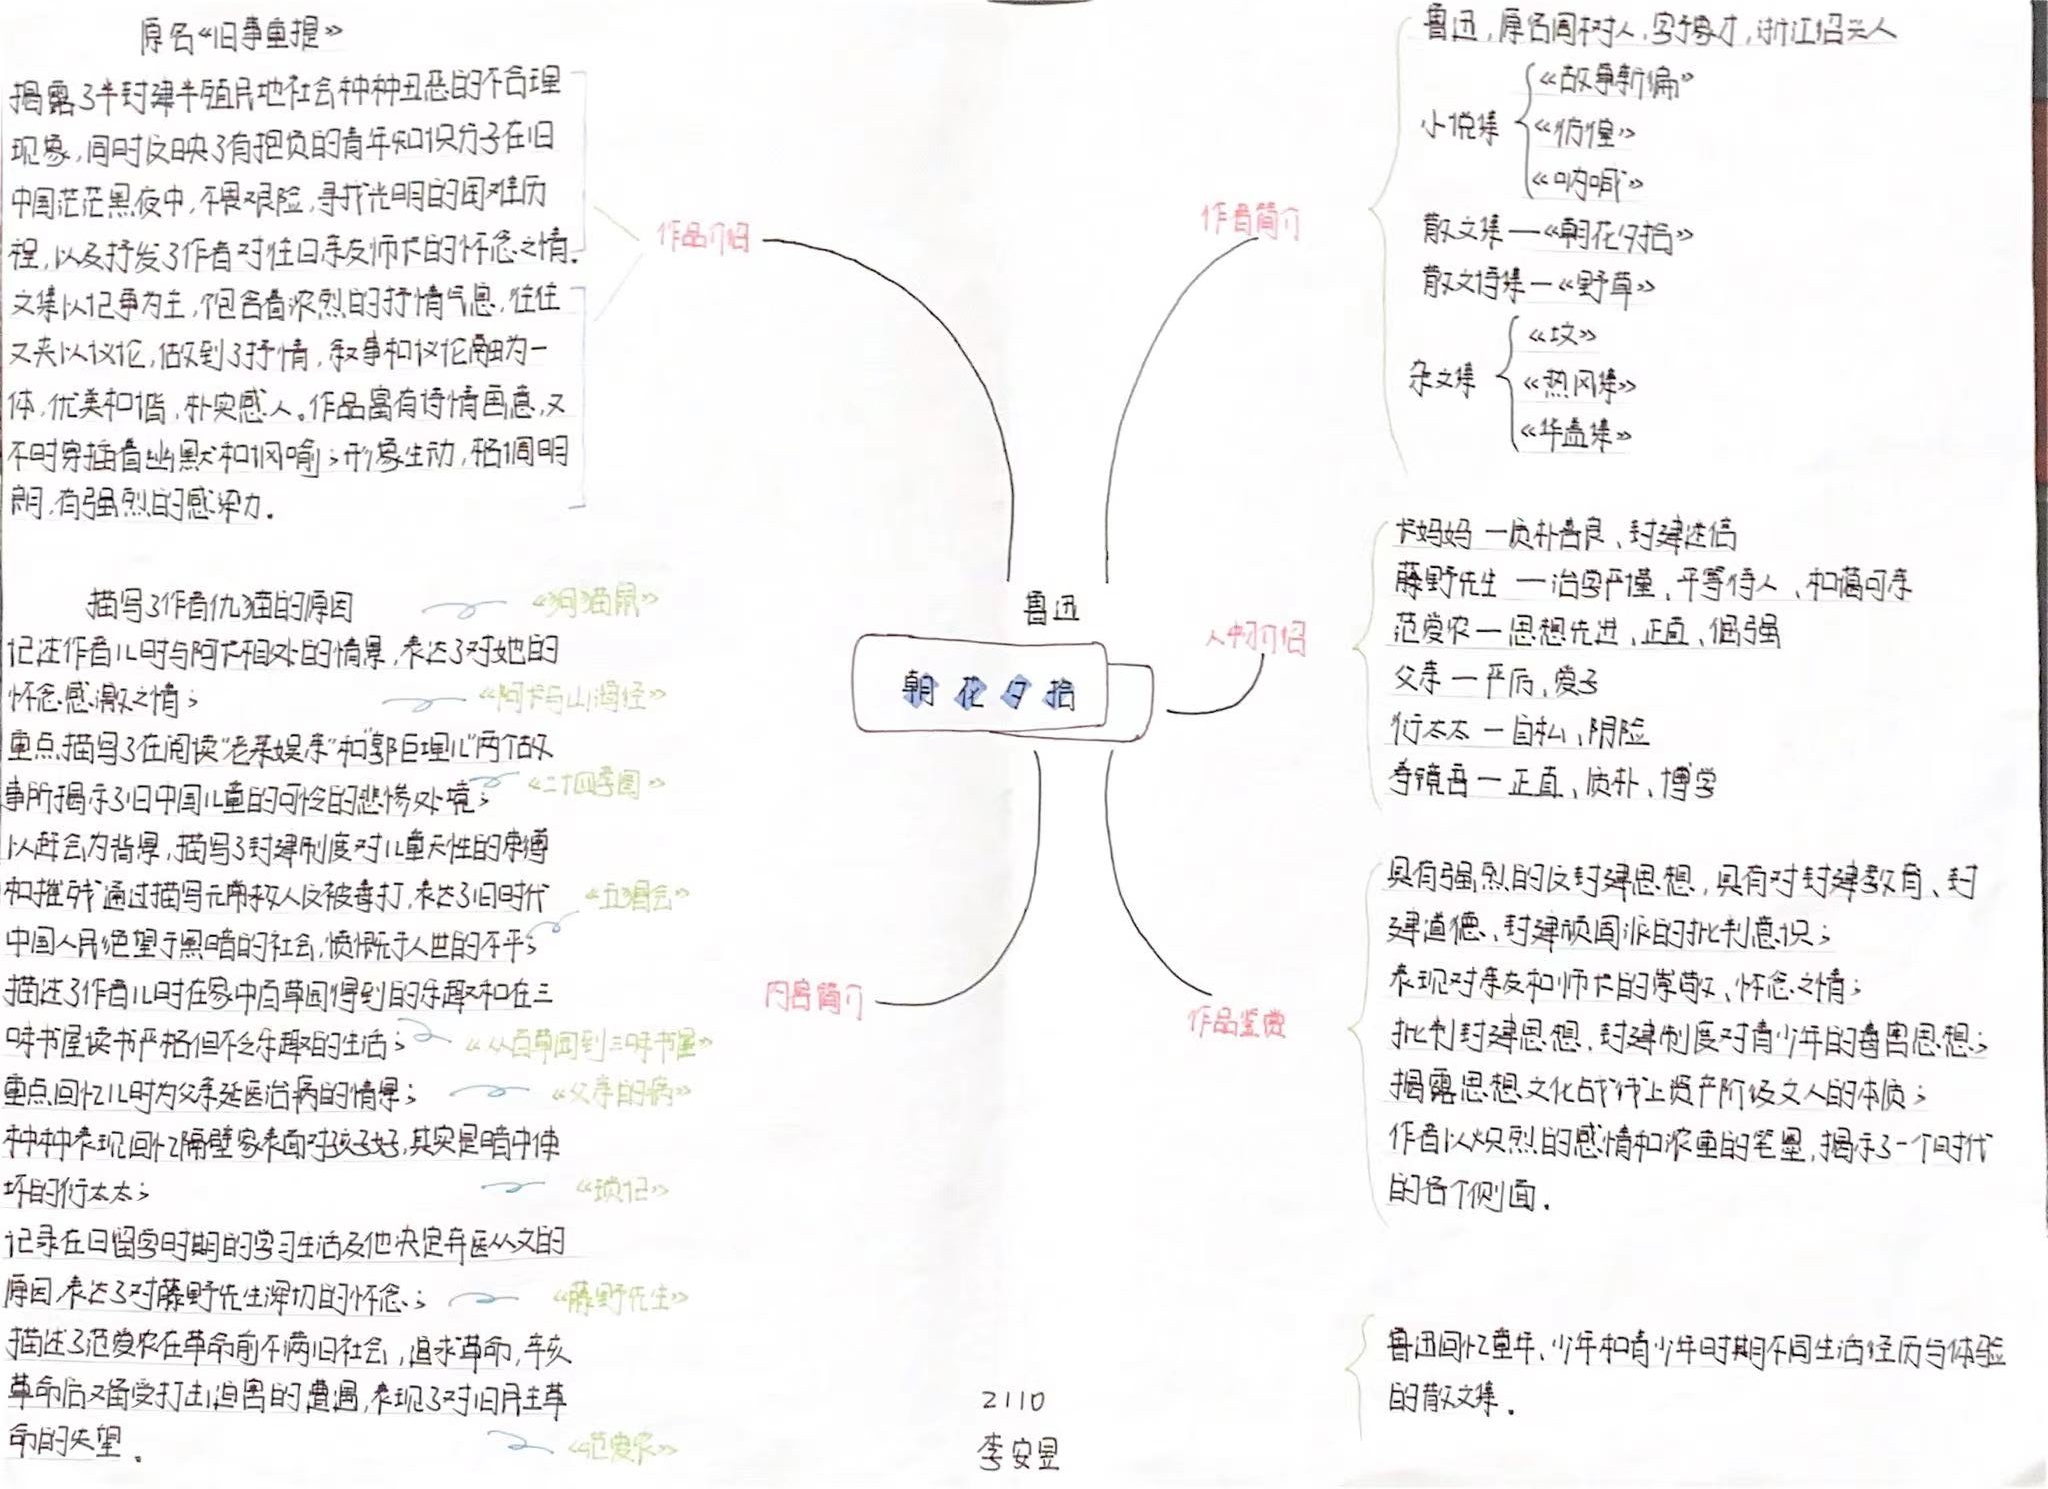 原名《旧事重提》
揭露了半封建半殖民地社会种种丑恶的不合理
现象,同时反映了有抱负的青年知识分子在旧
中国茫茫黑夜中,不畏艰险,寻找光明的困难历
程,以及抒发了作者对往日亲友师长的怀念之情。
文集以记事为主,饱含着浓烈的抒情气息,往往
又夹以议论,做到了抒情,叙事和议论融为一
体,优美和谐,朴实感人。作品富有诗情画意,又
不时穿插着幽默和讽喻;形象生动,格调明
朗,有强烈的感染力。
作品介绍
描写了作者仇猫的原因
《狗猫鼠》
记述作者儿时与阿长相处的情景,表达了对她的
怀念感激之情;
《阿长与山海经》
重点描写了在阅读“老莱娱亲”和“郭巨埋儿”两个故
事所揭示了旧中国儿童的可怜的悲惨处境;
《二十四孝图》
以赶会为背景,描写了封建制度对儿童天性的束缚
和摧残通过描写无常救人反被毒打,表达了旧时代
《五猖会》
中国人民绝望于黑暗的社会,愤慨于人世的不平;
描述了作者儿时在家中百草园得到的乐趣和在三
味书屋读书严格但不乏乐趣的生活;
《从百草园到三味书屋》
重点回忆儿时为父亲延医治病的情景;
《父亲的病》
种种表现回忆隔壁家表面对孩子好,其实是暗中使
坏的衍太太;
《琐记》
记录在日留学时期的学习生活及他决定弃医从文的
原因,表达了对藤野先生深切的怀念;
《藤野先生》
描述了范爱农在革命前不满旧社会,追求革命,辛亥
革命后又备受打击迫害的遭遇,表现了对旧民主革
命的失望。
《范爱农》
内容简介
鲁迅
朝花夕拾
2110
李安昱
作者简介
鲁迅,原名周树人,字豫才,浙江绍兴人
小说集
《故事新编》
《彷徨》
《呐喊》
散文集—《朝花夕拾》
散文诗集—《野草》
杂文集
《坟》
《热风集》
《华盖集》
人物介绍
长妈妈—质朴善良、封建迷信
藤野先生—治学严谨、平等待人、和蔼可亲
范爱农—思想先进、正直、倔强
父亲—严厉、爱子
衍太太—自私、阴险
寿镜吾—正直、质朴、博学
作品鉴赏
具有强烈的反封建思想,具有对封建教育、封
建道德、封建顽固派的批判意识;
表现对亲友和师长的崇敬、怀念之情;
批判封建思想,封建制度对青少年的毒害思想;
揭露思想文化战线上资产阶级文人的本质;
作者以炽烈的感情和浓重的笔墨,揭示了一个时代
的各个侧面。
鲁迅回忆童年、少年和青少年时期不同生活经历与体验
的散文集。